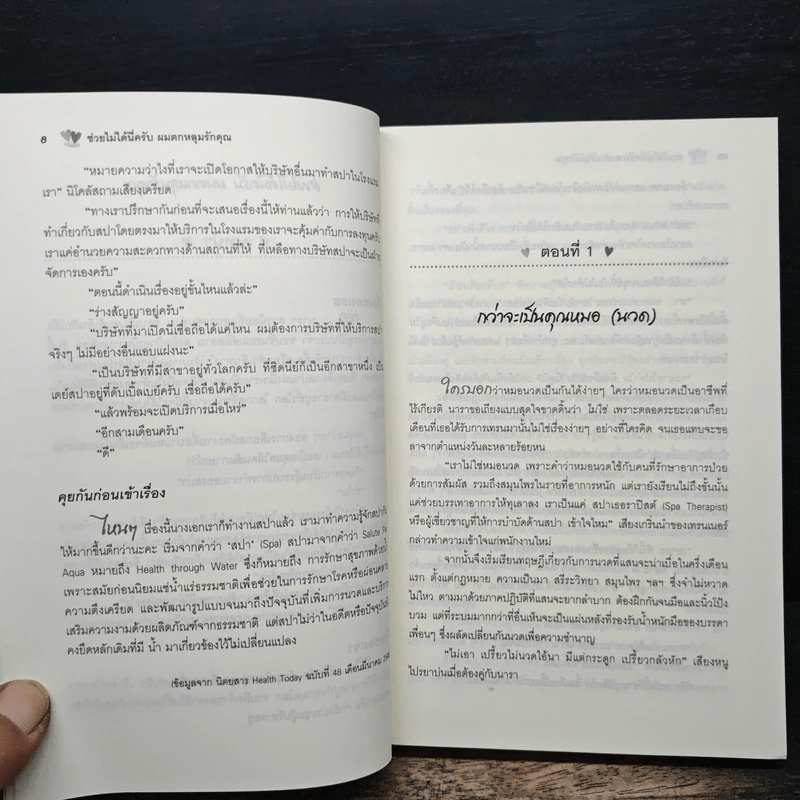 8 ช่วยไม่ได้นี่ครับ ผมตกหลุมรักคุณ
“หมายความว่าไงที่เราจะเปิดโอกาสให้บริษัทอื่นมาทำสปาในโรงแรม
เรา” นิโคลัสถามเสียงเครียด
“ทางเราปรึกษากันก่อนที่จะเสนอเรื่องนี้ให้ท่านแล้วว่า การให้บริษัทที่
ทำเกี่ยวกับสปาโดยตรงมาให้บริการในโรงแรมของเราจะคุ้มค่ากับการลงทุนครับ
เราแค่อำนวยความสะดวกทางด้านสถานที่ให้ ที่เหลือทางบริษัทสปาจะเป็นฝ่าย
จัดการเองครับ”
“ตอนนี้ดำเนินเรื่องอยู่ขั้นไหนแล้วล่ะ”
“ร่างสัญญาอยู่ครับ”
“บริษัทที่มาเปิดนี่เชื่อถือได้แค่ไหน ผมต้องการบริษัทที่ให้บริการสปา
จริงๆ ไม่มีอย่างอื่นแอบแฝงนะ”
“เป็นบริษัทที่มีสาขาอยู่ทั่วโลกครับ ที่ซิดนีย์ก็เป็นอีกสาขาหนึ่ง เป็น
เดย์สปาอยู่ที่ดับเบิ้ลเบย์ครับ เชื่อถือได้ครับ”
“แล้วพร้อมจะเปิดบริการเมื่อไหร่”
“อีกสามเดือนครับ”
“ดี”
คุยกันก่อนเข้าเรื่อง
ไหนๆ เรื่องนี้นางเอกเราก็ทำงานสปาแล้ว เรามาทำความรู้จักสปากัน
ให้มากขึ้นดีกว่านะคะ เริ่มจากคำว่า ‘สปา’ (Spa) สปามาจากคำว่า Salute Per
Aqua หมายถึง Health through Water ซึ่งก็หมายถึง การรักษาสุขภาพด้วยน้ำ
เพราะสมัยก่อนนิยมแช่น้ำแร่ธรรมชาติเพื่อช่วยในการรักษาโรคหรือผ่อนคลาย
ความตึงเครียด และพัฒนารูปแบบจนมาถึงปัจจุบันที่เพิ่มการนวดและบริการ
เสริมความงามด้วยผลิตภัณฑ์จากธรรมชาติ แต่สปาไม่ว่าในอดีตหรือปัจจุบันก็
คงยึดหลักเดิมที่มี น้ำ มาเกี่ยวข้องไว้ไม่เปลี่ยนแปลง
(ข้อมูลจาก นิตยสาร Health Today ฉบับที่ 48 เดือนมีนาคม
ตอนที่ 1
กว่าจะเป็นคุณหมอ (นวด)
ใครบอกว่าหมอนวดเป็นกันได้ง่ายๆ ใครว่าหมอนวดเป็นอาชีพที่
ไร้เกียรติ นาราขอเถียงแบบสุดใจขาดดิ้นว่า ไม่ใช่ เพราะตลอดระยะเวลาเกือบ
เดือนที่เธอได้รับการเทรนมานั้นไม่ใช่เรื่องง่ายๆ อย่างที่ใครคิด จนเธอแทบจะขอ
ลาจากตำแหน่งวันละหลายร้อยหน
“เราไม่ใช่หมอนวด เพราะคำว่าหมอนวดใช้กับคนที่รักษาอาการป่วย
ด้วยการสัมผัส รวมถึงสมุนไพรในรายที่อาการหนัก แต่เรายังเรียนไม่ถึงขั้นนั้น
แค่ช่วยบรรเทาอาการให้ทุเลาลง เราเป็นแค่ สปาเธอราปิสต์ (Spa Therapist)
หรือผู้เชี่ยวชาญที่ให้การบำบัดด้านสปา เข้าใจไหม” เสียงเกริ่นนำของเทรนเนอร์
กล่าวทำความเข้าใจแก่พนักงานใหม่
จากนั้นจึงเริ่มเรียนทฤษฎีเกี่ยวกับการนวดที่แสนจะน่าเบื่อในครึ่งเดือน
แรก ตั้งแต่กฎหมาย ความเป็นมา สรีระวิทยา สมุนไพร ฯลฯ ซึ่งจำไม่หวาด
ไม่ไหว ตามมาด้วยภาคปฏิบัติที่แสนจะยากลำบาก ต้องฝึกกันจนมือและนิ้วโป้ง
บวม แต่ที่ระบมมากกว่าที่อื่นเห็นจะเป็นแผ่นหลังที่รองรับน้ำหนักมือของบรรดา
เพื่อนๆ ซึ่งผลัดเปลี่ยนกันนวดเพื่อความชำนาญ
“ไม่เอา เปรี้ยวไม่นวดไอ้นา มีแต่กระดูก เปรี้ยวกลัวหัก” เสียงหนู
ไปรยาบ่นเมื่อต้องคู่กับนารา